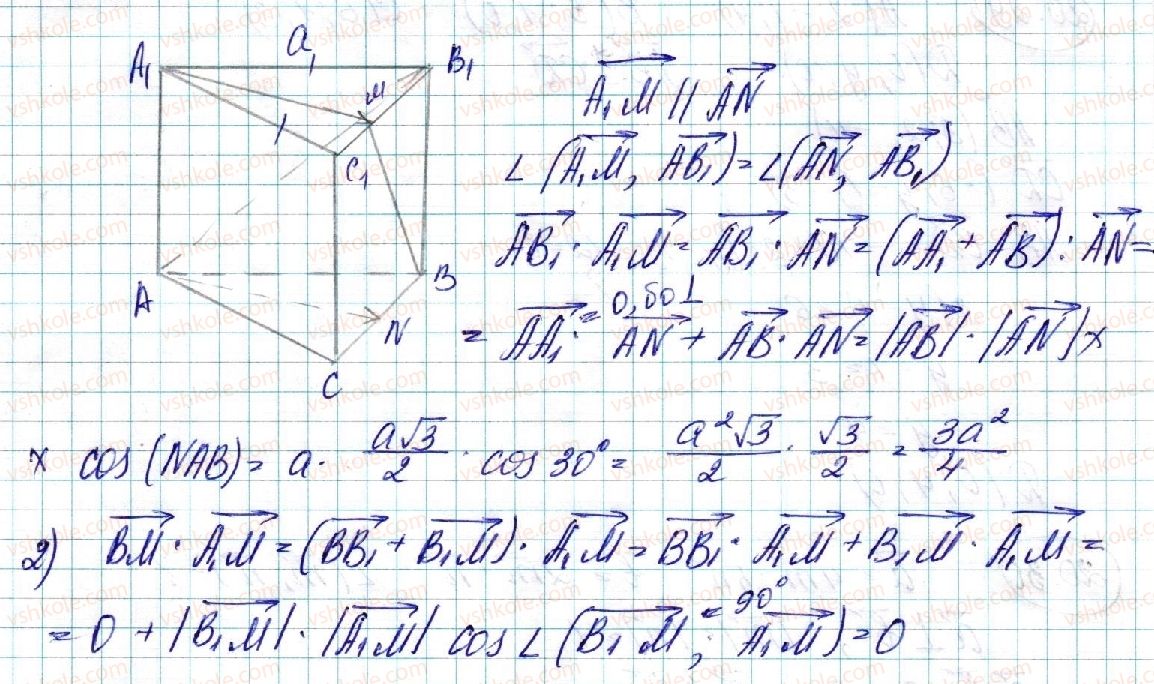 A₁ a₁ B₁
M
C₁
A B
N
C
A₁M⃗ // AN⃗
∠(A₁M⃗, AB₁⃗) = ∠(AN⃗, AB₁⃗)
AB₁⃗ · A₁M⃗ = AB₁⃗ · AN⃗ = (AA₁⃗ + AB⃗) · AN⃗ =
= 0, бо ⊥
= AA₁⃗ · AN⃗ + AB⃗ · AN⃗ = |AB⃗| · |AN⃗| ×
× cos(NAB) = a · a√3/2 · cos 30° = a²√3/2 · √3/2 = 3a²/4
2) BM⃗ · A₁M⃗ = (BB₁⃗ + B₁M⃗) · A₁M⃗ = BB₁⃗ · A₁M⃗ + B₁M⃗ · A₁M⃗ =
= 90°
= 0 + |B₁M⃗| · |A₁M⃗| cos ∠(B₁M⃗; A₁M⃗) = 0
vshkole.com